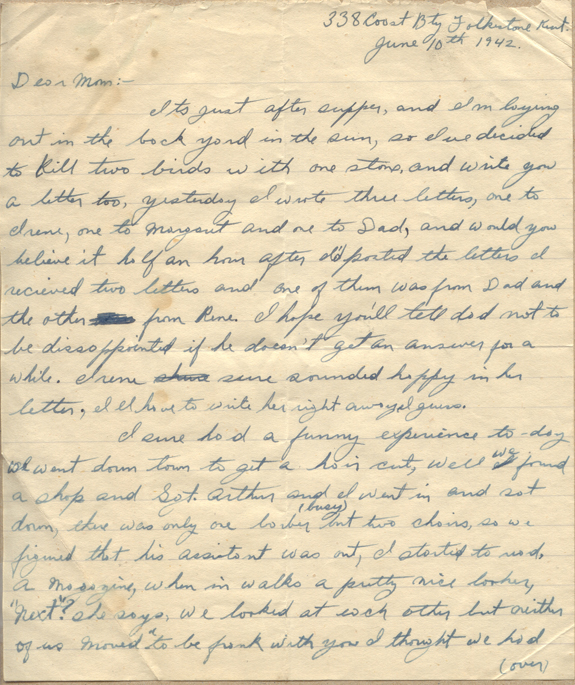 338 Coast Bty Folkstone Kent.
June 10th 1942.
Dear Mom:-
Its just after supper, and I'm laying
out in the back yard in the sun, so I've decided
to kill two birds with one stone, and write you
a letter too, yesterday I wrote three letters, one to
Irene, one to Margaret and one to Dad, and would you
believe it half an hour after I'd posted the letters I
recieved two letters and one of them was from Dad and
the other from Rene. I hope you'll tell dad not to
be dissappointed if he doesn't get an answer for a
while. Irene sure sounded happy in her
letter, I'll have to write her right away I guess.
I sure had a funny experience to-day
we went down town to get a hair cut, well we found
a shop and Sgt. Arthur and I went in and sat
down, there was only one barber (busy) but two chairs, so we
figured that his assistant was out, I started to read
a magazine, when in walks a pretty nice looker,
"Next"? she says, we looked at each other but neither
of us moved "to be frank with you I thought we had
(over)